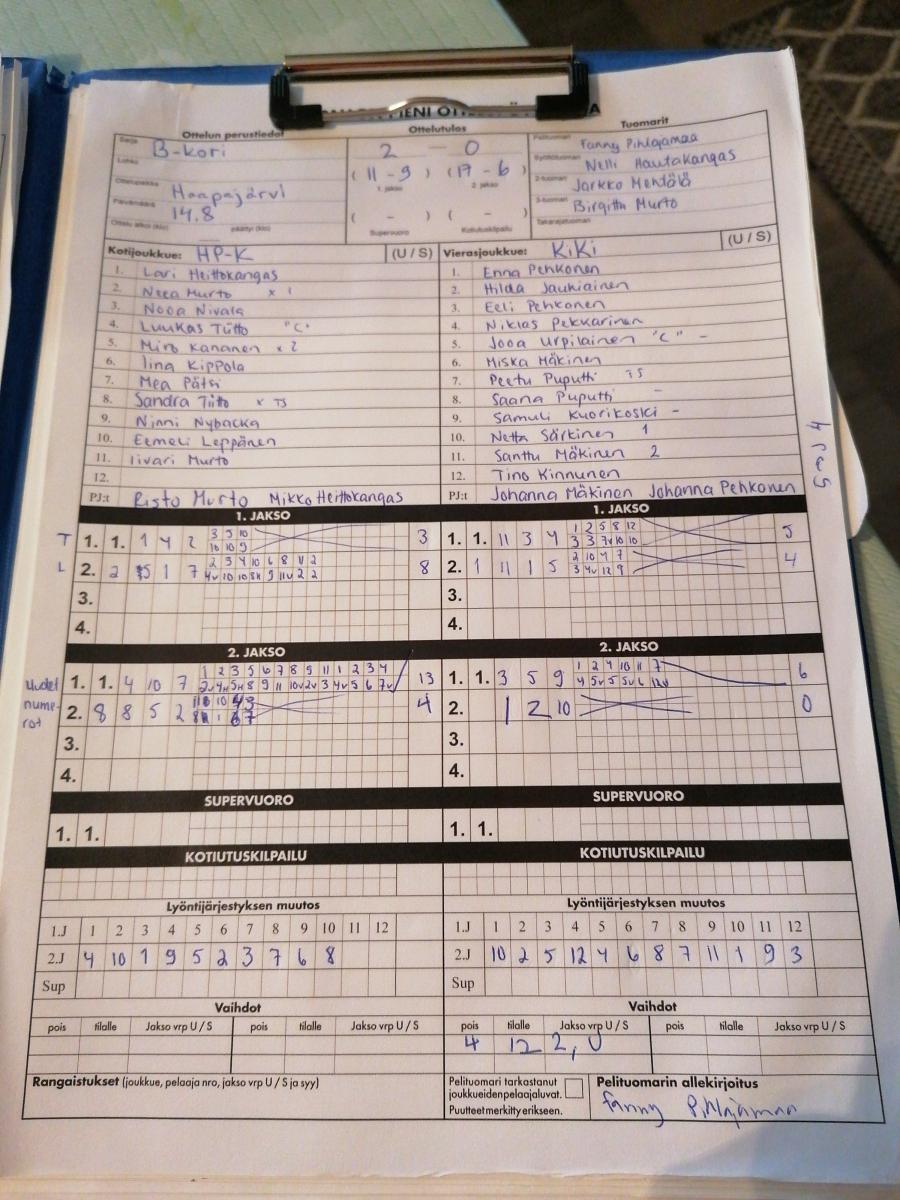 Ottelun perustiedot Ottelutulos Tuomarit
Sarja B-kori 2 - 0 Pelituomari Fanny Pihlajamaa
Lohko (11 - 9) (17 - 6) Syöttötuomari Nelli Hautakangas
1. jakso 2. jakso
Ottelupaikka Haapajärvi 2-tuomari Jarkko Mehtälä
Päivämäärä 14.8 ( - ) ( - ) 3-tuomari Birgitta Murto
Ottelu alkoi (klo) päättyi (klo) Supervuoro Kotiutuskilpailu Takarajatuomari
Kotijoukkue: HP-K (U / S) Vierasjoukkue: KiKi (U / S)
1. Lari Heittokangas 1. Enna Pehkonen
2. Neea Murto x 1 2. Hilda Jauhiainen
3. Nooa Nivala 3. Eeli Pehkonen
4. Luukas Tiitto "C" 4. Niklas Pekkarinen
5. Miro Kananen x 2 5. Jooa Urpilainen "C" -
6. Iina Kippola 6. Miska Mäkinen
7. Mea Pätsi 7. Peetu Puputti
8. Sandra Tiitto x TS 8. Saana Puputti -
9. Ninni Nybacka 9. Samuli Kuorikoski -
10. Eemeli Leppänen 10. Netta Särkinen 1
11. Iivari Murto 11. Santtu Mäkinen 2
12. 12. Tino Kinnunen
PJ:t Risto Murto Mikko Heittokangas PJ:t Johanna Mäkinen Johanna Pehkonen
1. JAKSO 1. JAKSO
3 5 10 1 2 5 8 12
T 1. 1. 1 4 2 10 10 9 3 1. 1. 11 3 4 3 3 7v 10 10 5
2 3 4 10 6 8 11 2 2 10 4 7
L 2. 2 5 1 7 8 2. 1 11 1 5 3 4v 12 9 4
3. 3.
4. 4.
2. JAKSO 2. JAKSO
1 2 3 5 6 7 8 9 11 1 2 3 4 1 2 4 10 11 7
Uudet 1. 1. 4 10 7 13 1. 1. 3 5 9 4 5v 5 5v 6 12v 6
nume-
rot 2. 8 8 5 2 4 2. 1 2 10 0
3. 3.
4. 4.
SUPERVUORO SUPERVUORO
1. 1. 1. 1.
KOTIUTUSKILPAILU KOTIUTUSKILPAILU
Lyöntijärjestyksen muutos Lyöntijärjestyksen muutos
1.J 1 2 3 4 5 6 7 8 9 10 11 12 1.J 1 2 3 4 5 6 7 8 9 10 11 12
2.J 4 10 1 9 5 2 3 7 6 8 2.J 10 2 5 12 4 6 8 7 11 1 9 3
Sup Sup
Vaihdot Vaihdot
pois tilalle Jakso vrp U / S pois tilalle Jakso vrp U / S pois tilalle Jakso vrp U / S pois tilalle Jakso vrp U / S
4 12 2, U
Rangaistukset (joukkue, pelaaja nro, jakso vrp U / S ja syy) Pelituomari tarkastanut Pelituomarin allekirjoitus
joukkueiden pelaajaluvat.
Puutteet merkitty erikseen. Fanny Pihlajamaa